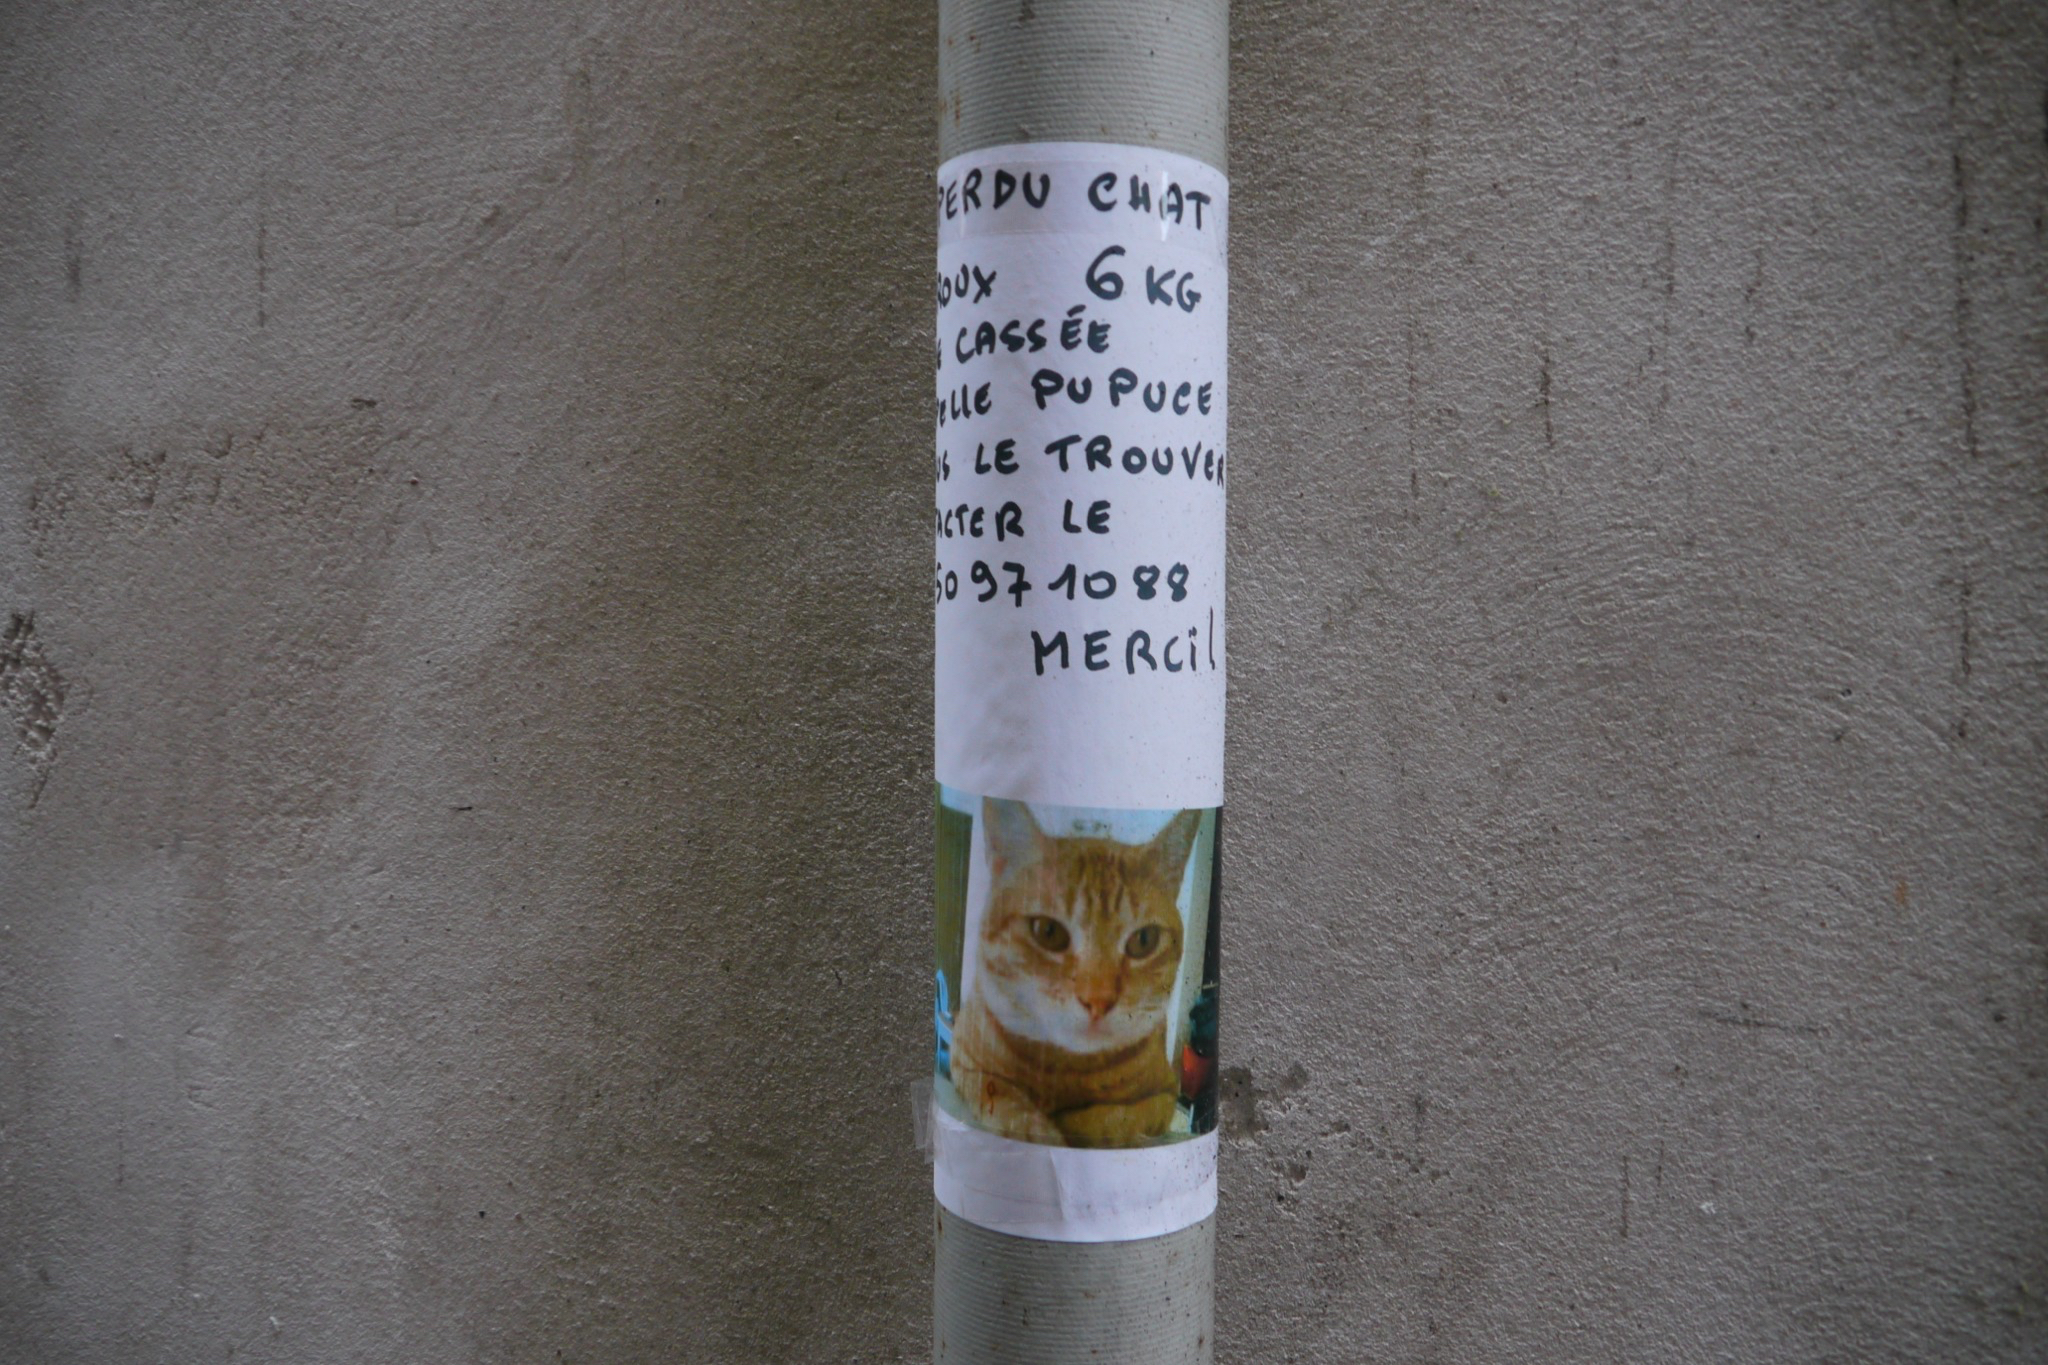 PERDU CHAT
ROUX 6 KG
CASSÉE
PELLE PUPUCE
US LE TROUVER
ACTER LE
50 97 10 88
MERCI!